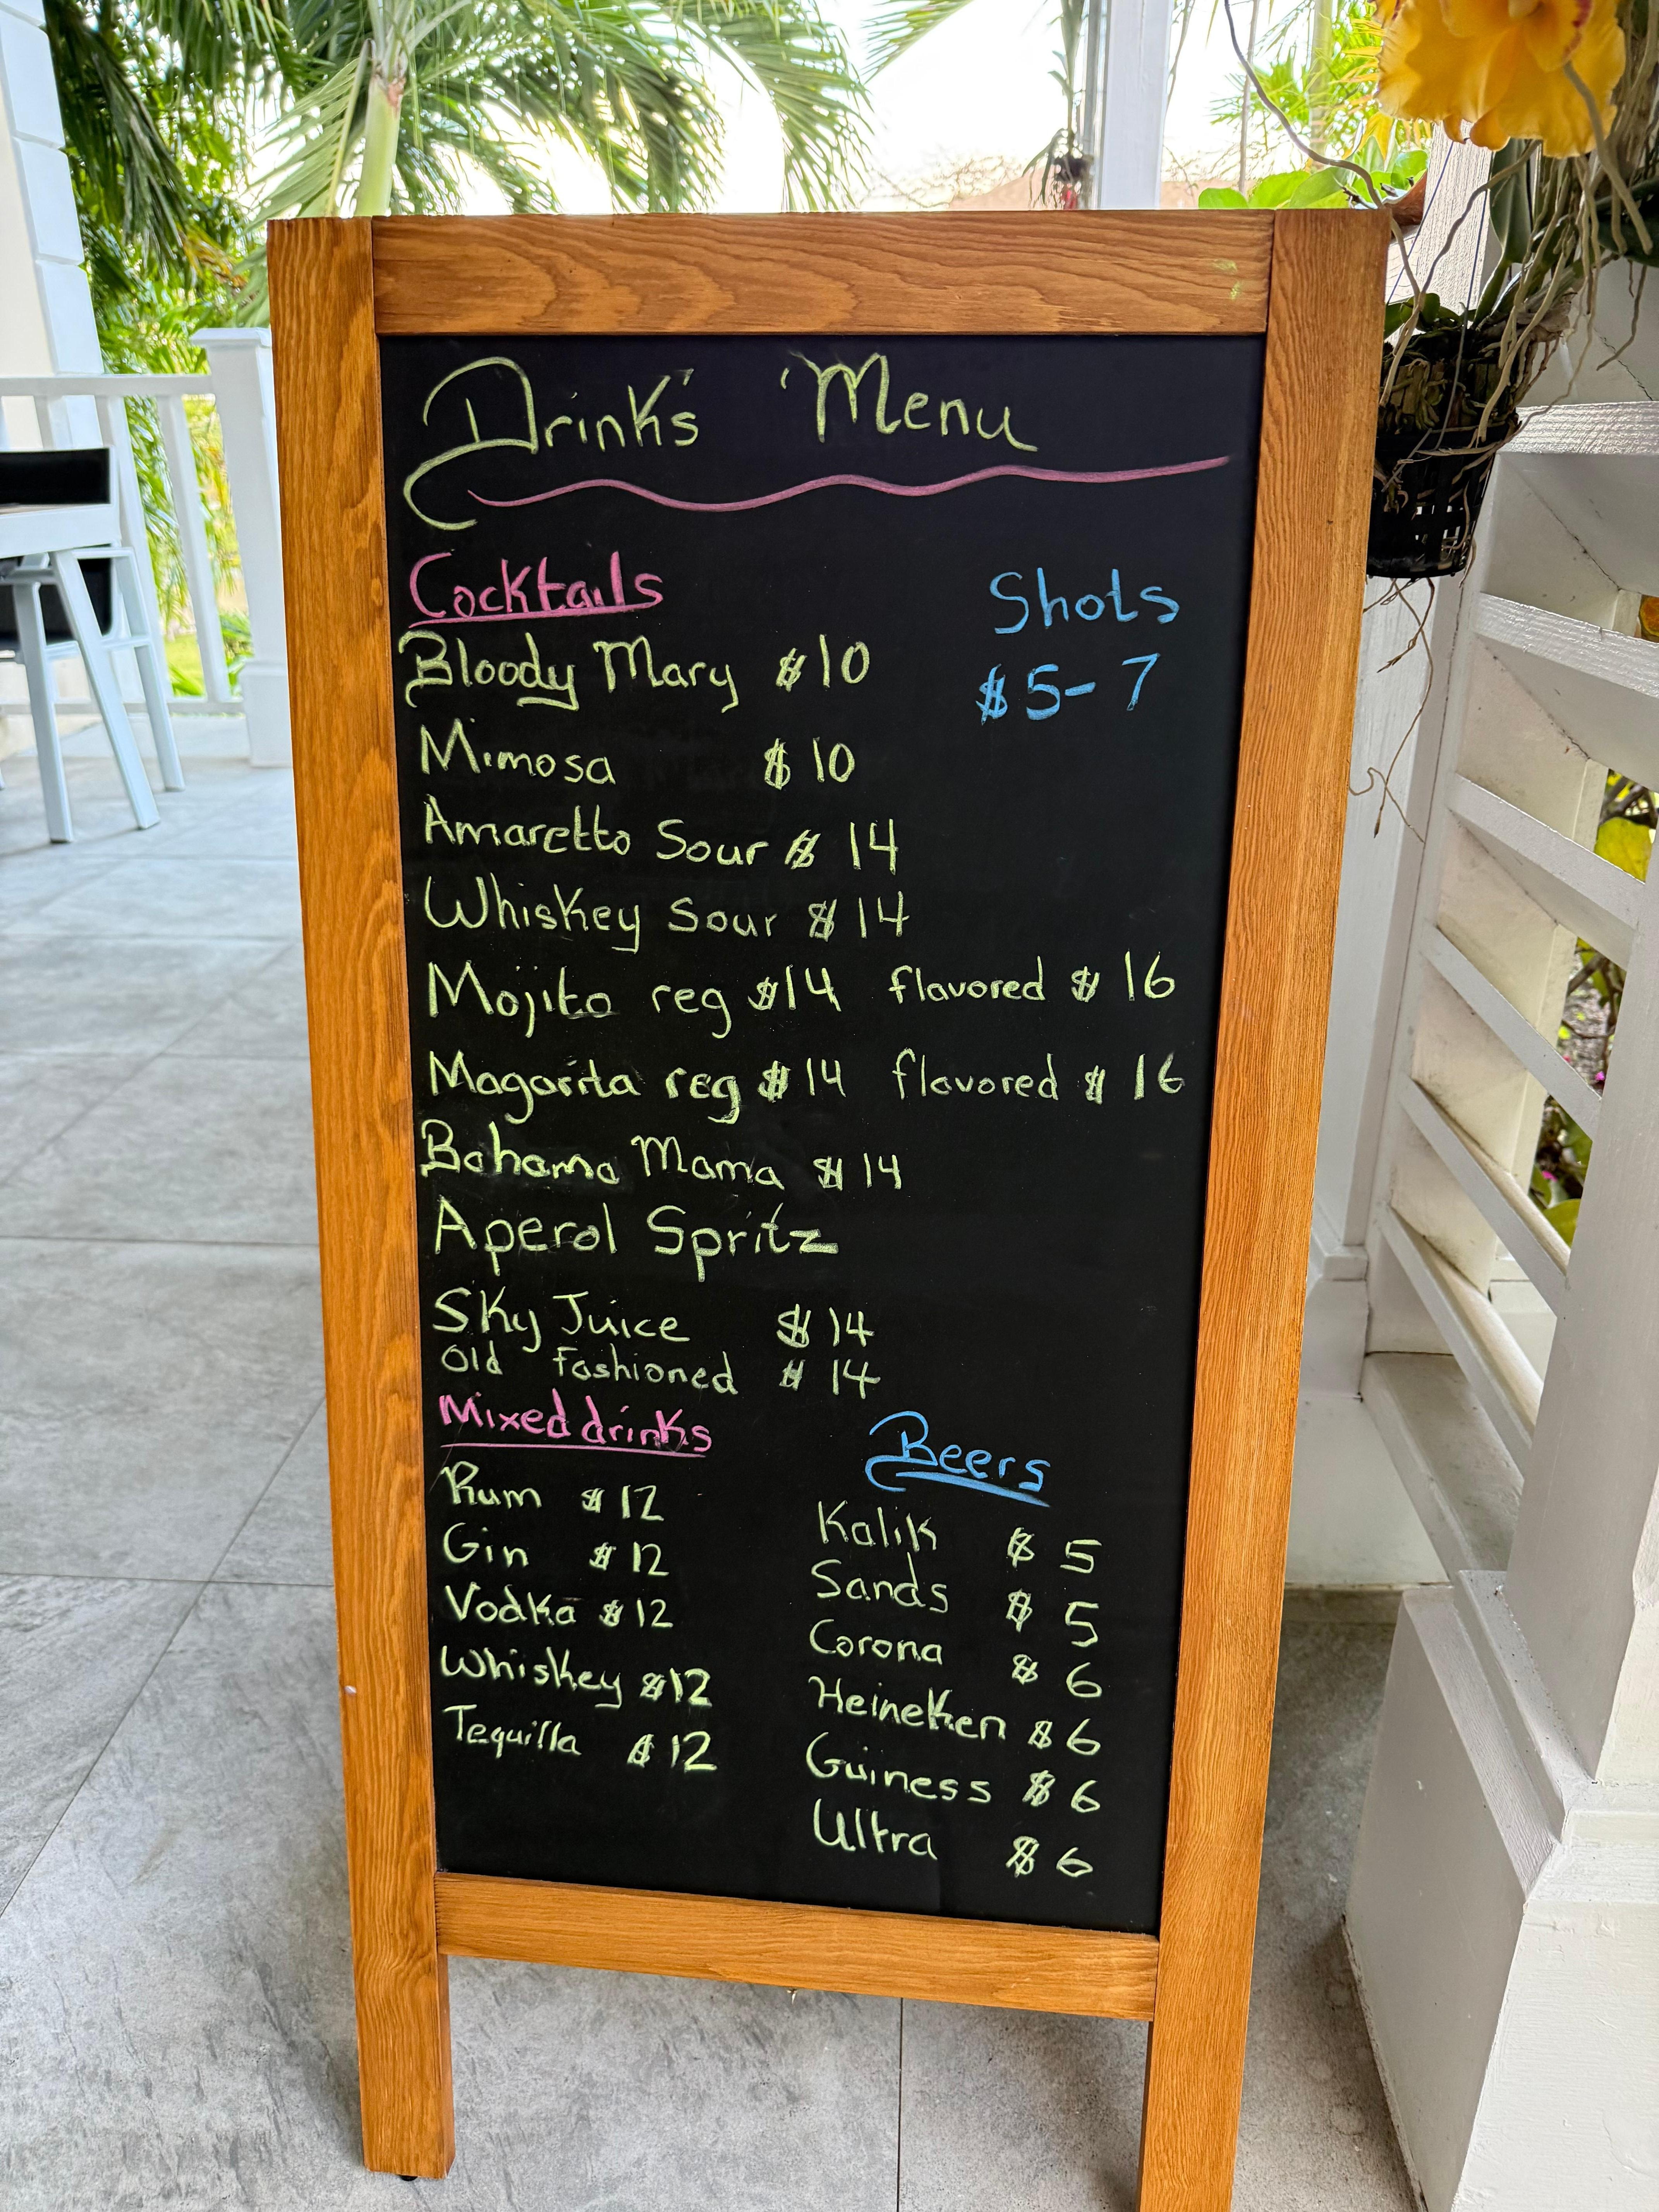 Drink's Menu
Cocktails
Bloody Mary $10
Mimosa $10
Amaretto Sour $14
Whiskey Sour $14
Mojito reg $14 flavored $16
Magarita reg $14 flavored $16
Bahama Mama $14
Aperol Spritz
Sky Juice $14
Old Fashioned $14
Shots
$5-7
Mixed drinks
Rum $12
Gin $12
Vodka $12
Whiskey $12
Tequilla $12
Beers
Kalik $5
Sands $5
Corona $6
Heineken $6
Guiness $6
Ultra $6